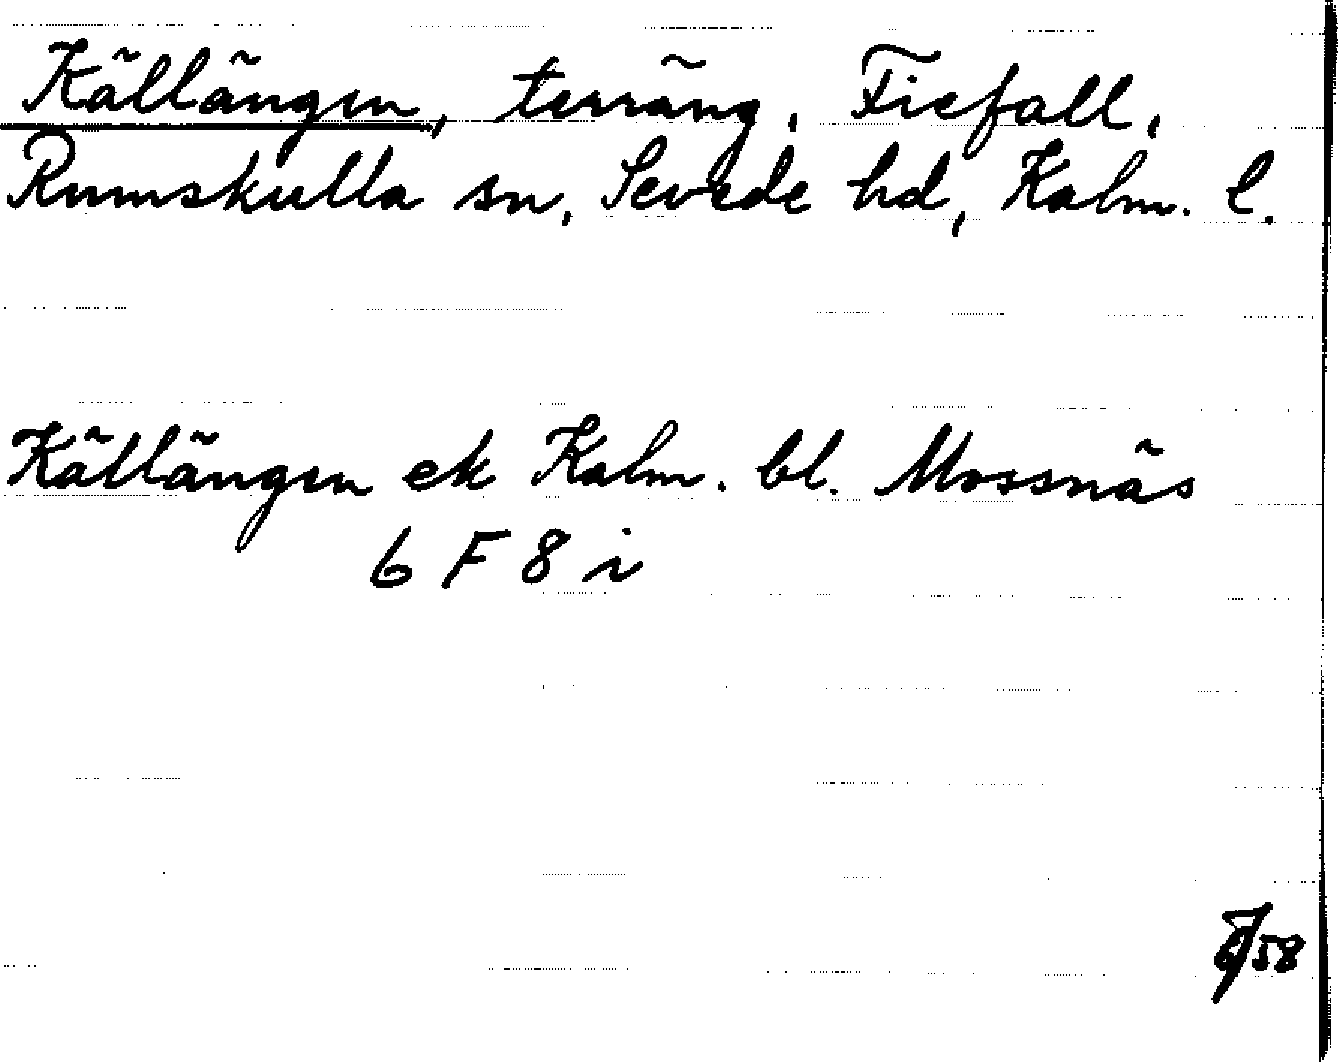 Källängen, terräng, Fiefall,
Rumskulla sn, Sevede hd, Kalm. l.
Källängen ek Kalm. bl. Mossnäs
6 F 8 i
58